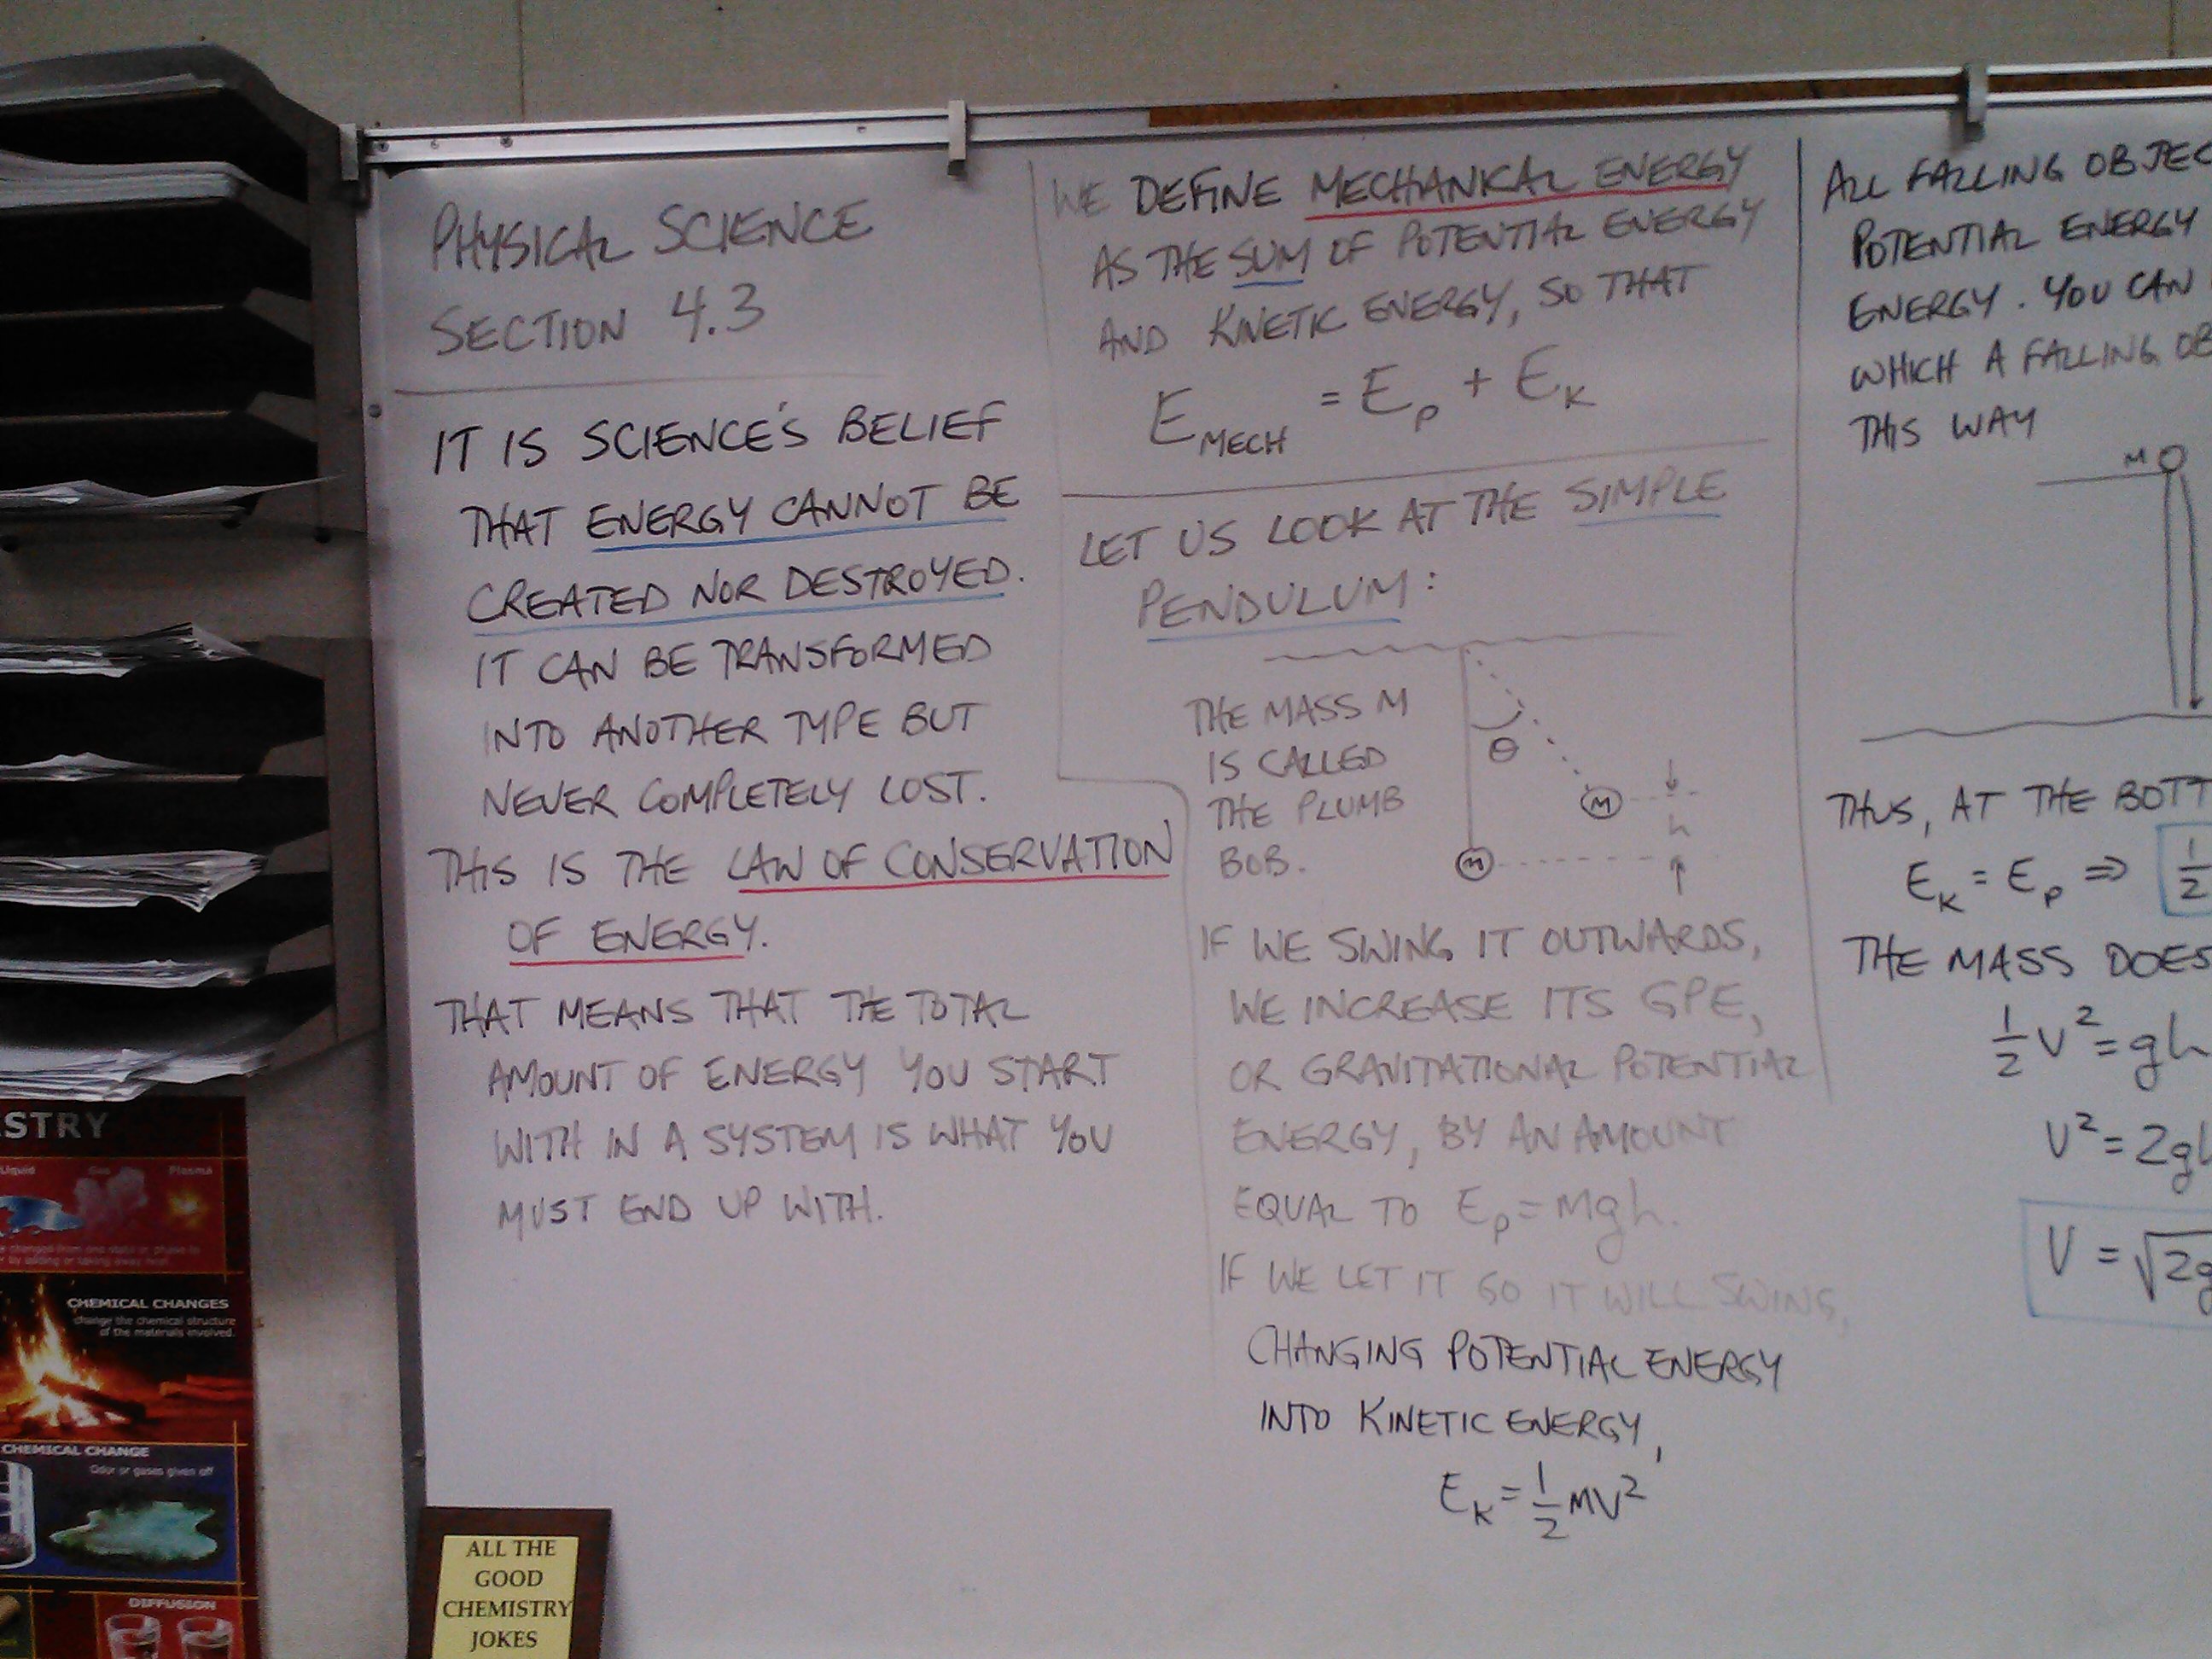 PHYSICAL SCIENCE
SECTION 4.3
IT IS SCIENCE'S BELIEF
THAT ENERGY CANNOT BE
CREATED NOR DESTROYED.
IT CAN BE TRANSFORMED
INTO ANOTHER TYPE BUT
NEVER COMPLETELY LOST.
THIS IS THE LAW OF CONSERVATION
OF ENERGY.
THAT MEANS THAT THE TOTAL
AMOUNT OF ENERGY YOU START
WITH IN A SYSTEM IS WHAT YOU
MUST END UP WITH.
WE DEFINE MECHANICAL ENERGY
AS THE SUM OF POTENTIAL ENERGY
AND KINETIC ENERGY, SO THAT
E_MECH = E_P + E_K
LET US LOOK AT THE SIMPLE
PENDULUM:
THE MASS M
IS CALLED
THE PLUMB
BOB.
θ
M
h
M
IF WE SWING IT OUTWARDS,
WE INCREASE ITS GPE,
OR GRAVITATIONAL POTENTIAL
ENERGY, BY AN AMOUNT
EQUAL TO E_P = Mgh.
IF WE LET IT GO IT WILL SWING,
CHANGING POTENTIAL ENERGY
INTO KINETIC ENERGY,
E_K = 1/2 MV²
ALL FALLING OBJEC
POTENTIAL ENERGY
ENERGY. YOU CAN
WHICH A FALLING OB
THIS WAY
M
THUS, AT THE BOTT
E_K = E_P ⇒ 1/2
THE MASS DOES
1/2 V² = gh
V² = 2gh
V = √2g
STRY
Liquid Gas Plasma
CHEMICAL CHANGES
change the chemical structure
of the materials involved.
CHEMICAL CHANGE
Odor or gases given off
DIFFUSION
ALL THE
GOOD
CHEMISTRY
JOKES